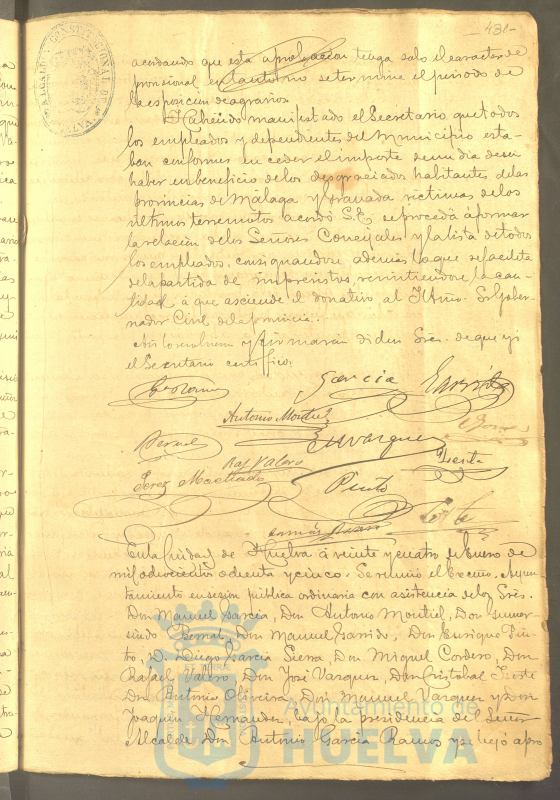 431-
ALCALDIA CONSTITUCIONAL DE
acordando que esta aprobacion tenga solo el caracter de
provisional en tanto no se termine el periodo de
la esposicion de agravios.
Habiendo manifestado el Secretario que todos
los empleados y dependientes del Municipio esta-
ban conformes en ceder el importe de un dia de su
haber en beneficio de los desgraciados habitantes de las
provincias de Málaga y Granada victimas de los
últimos terremotos acordó S.E. se proceda á formar
la relacion de los Señores Concejales y la lista de todos
los empleados, consignandose ademas lo que se facilita
de la partida de imprevistos, remitiendose la can-
tidad á que asciende el donativo al Iltmo. Sr. Gober-
nador Civil de la provincia.
Asi lo acordaron y firmarán dichos Sres. de que yo
el Secretario certifico.
Garcia Garrido
Antonio Montiel
Bernal E. Vazquez
Raf. Valero
Perez Machado Pinto
En la Ciudad de Huelva á veinte y cuatro de Enero de
mil ochocientos ochenta y cinco. Se reunió el Excmo. Ayun-
tamiento en sesion pública ordinaria con asistencia de los Sres.
Don Manuel Garcia, Don Antonio Montiel, Don Gumer-
sindo Bernal, Don Manuel Garrido, Don Enrique Pin-
to, D. Diego Garcia Sierra, Don Miguel Cordero, Don
Rafael Valero, Don José Vazquez, Don Cristobal Teste
Don Antonio Oliveira, Don Manuel Vazquez y Don
Joaquin Hernandez, bajo la presidencia del Señor
Alcalde Don Antonio Garcia Ramos y se leyó apro
Ayuntamiento de
HUELVA